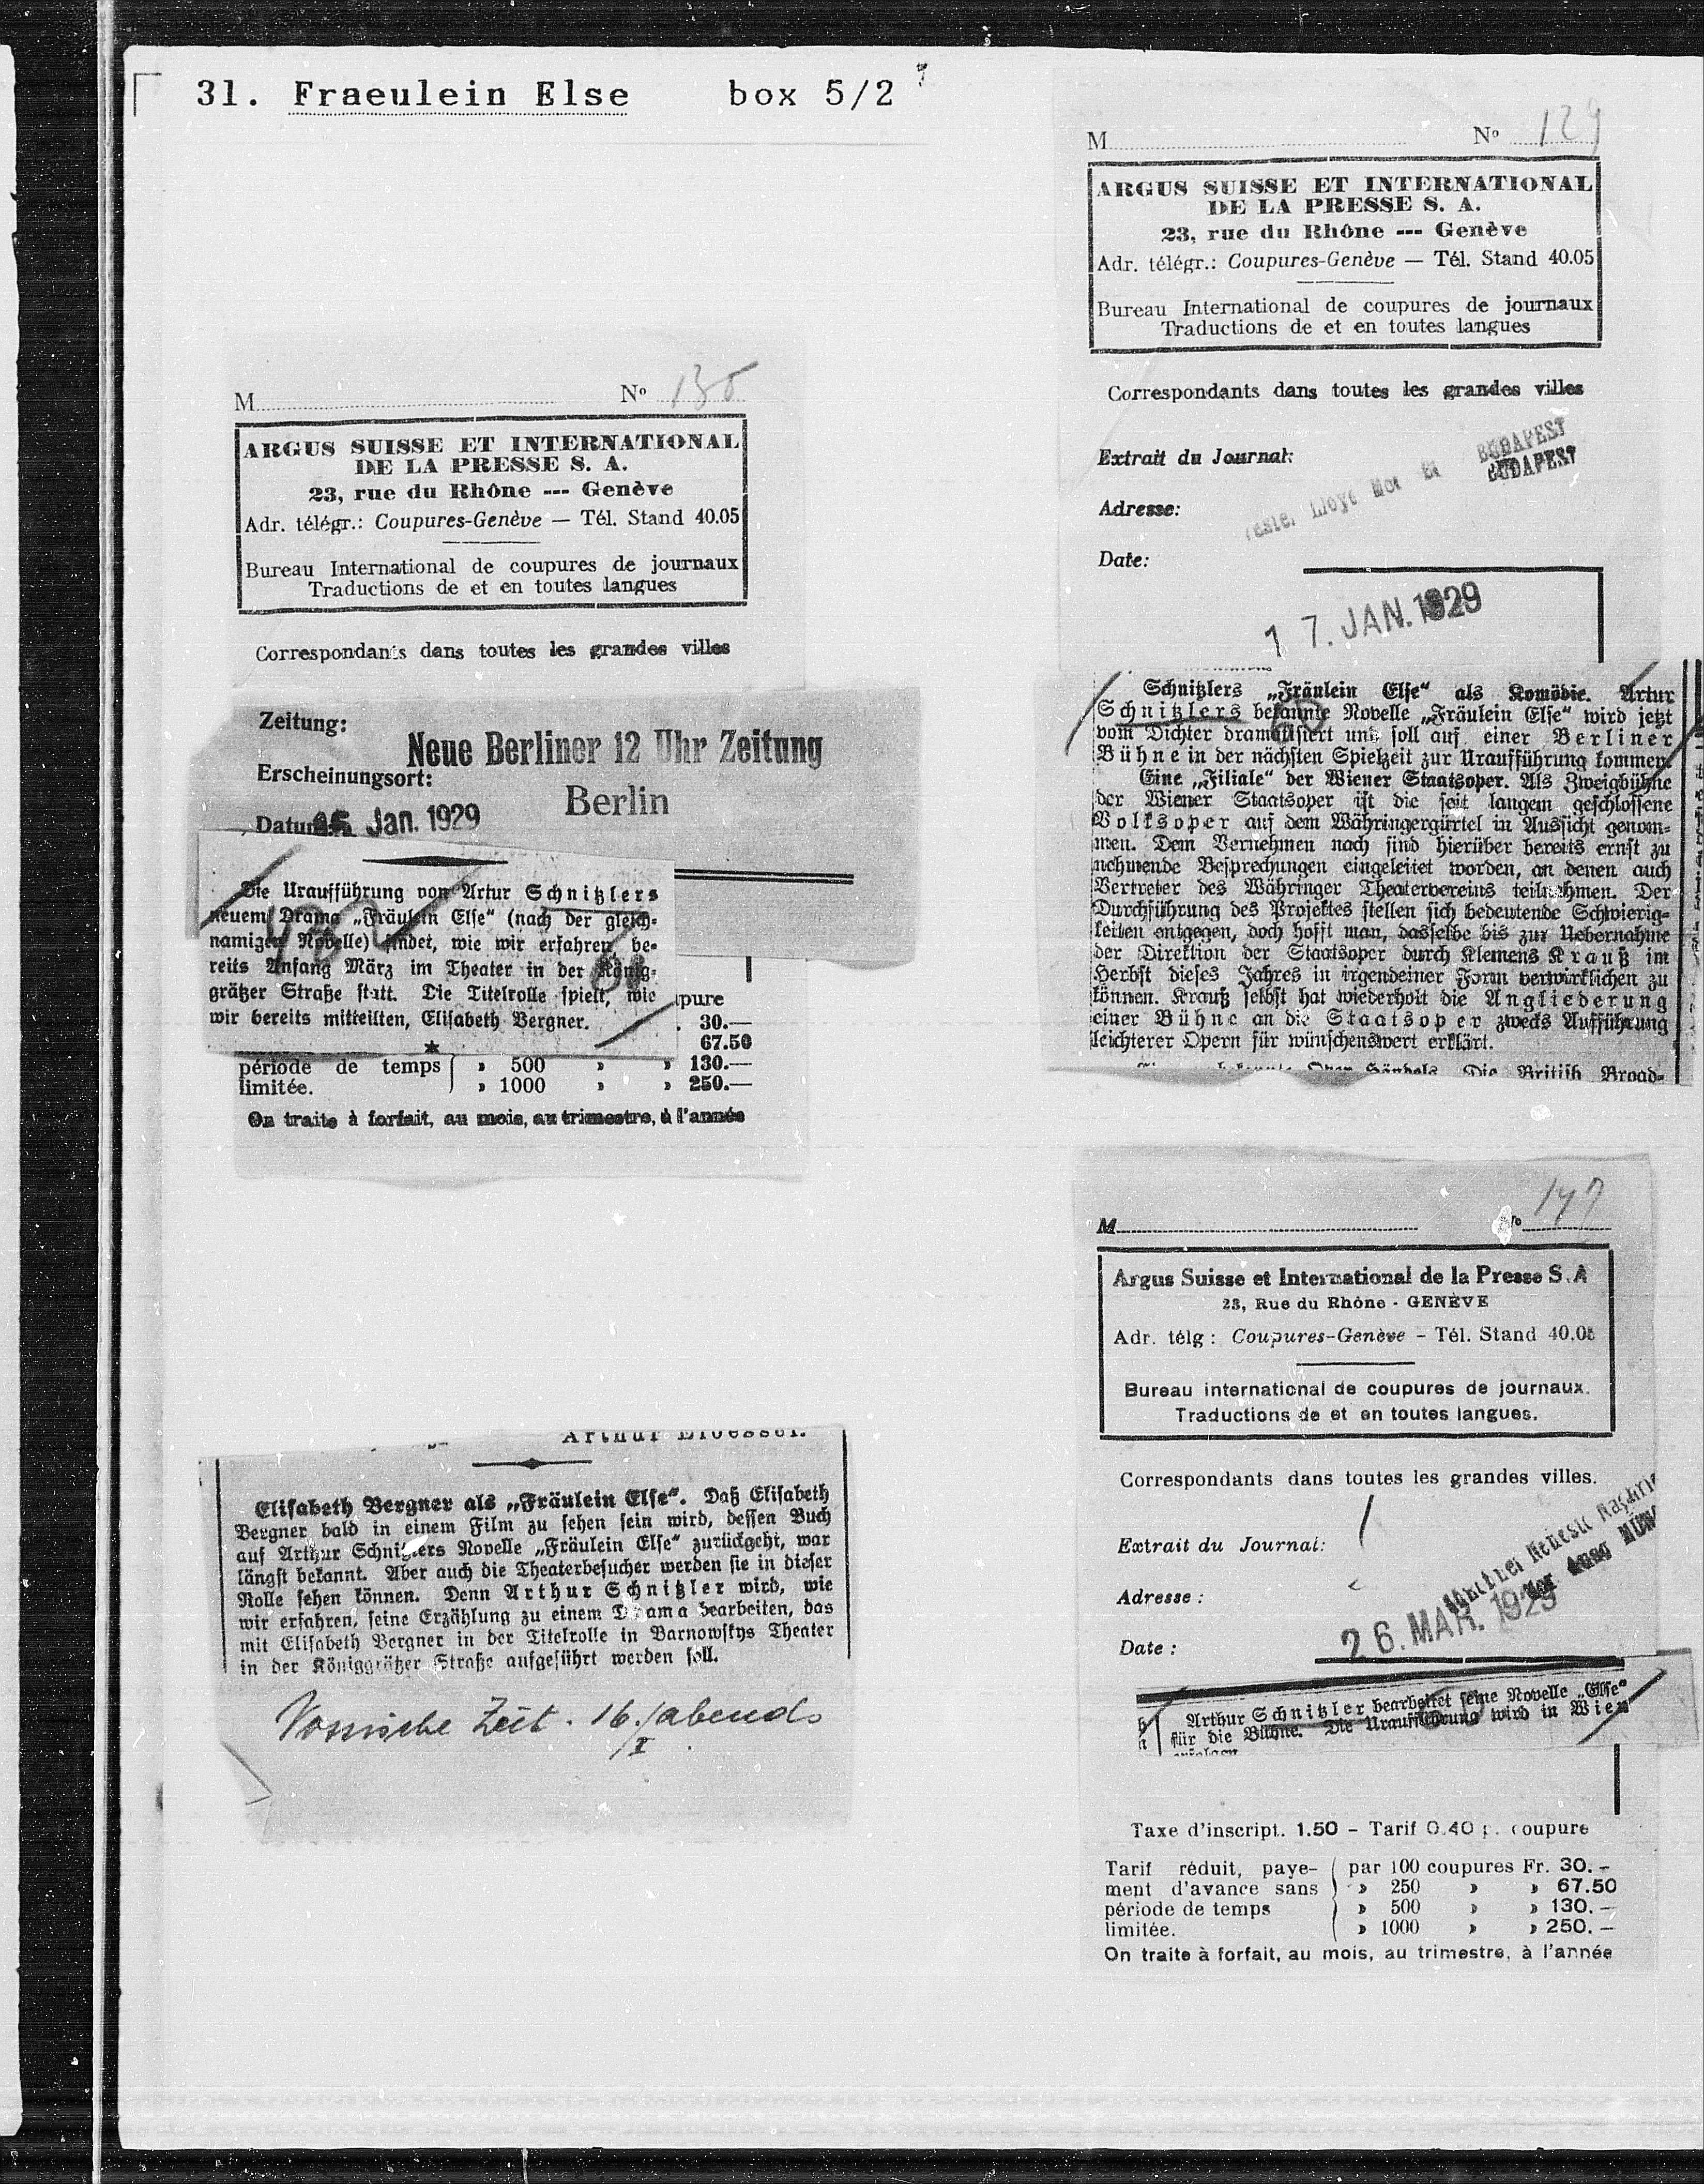 31. Fraeulein Else box 5/2
M No 135
ARGUS SUISSE ET INTERNATIONAL
DE LA PRESSE S. A.
23, rue du Rhône --- Genève
Adr. télégr.: Coupures-Genève — Tél. Stand 40.05
Bureau International de coupures de journaux
Traductions de et en toutes langues
Correspondants dans toutes les grandes villes
Zeitung:
Neue Berliner 12 Uhr Zeitung
Erscheinungsort:
Berlin
Datum Jan. 1929
Die Uraufführung von Artur Schnitzlers
neuem Drama „Fräulein Else“ (nach der gleich-
namigen Novelle) findet, wie wir erfahren, be-
reits Anfang März im Theater in der König-
grätzer Straße statt. Die Titelrolle spielt, wie
wir bereits mitteilten, Elisabeth Bergner.
pure
30.—
67.50
période de temps » 500 » » 130.—
limitée. » 1000 » » 250.—
On traite à forfait, au mois, au trimestre, à l'année
Elisabeth Bergner als „Fräulein Else“. Daß Elisabeth
Bergner bald in einem Film zu sehen sein wird, dessen Buch
auf Arthur Schnitzlers Novelle „Fräulein Else“ zurückgeht, war
längst bekannt. Aber auch die Theaterbesucher werden sie in dieser
Rolle sehen können. Denn Arthur Schnitzler wird, wie
wir erfahren, seine Erzählung zu einem Drama bearbeiten, das
mit Elisabeth Bergner in der Titelrolle in Barnowskys Theater
in der Königgrätzer Straße aufgeführt werden soll.
Vossische Zeit. 16./I abends
M No 129
ARGUS SUISSE ET INTERNATIONAL
DE LA PRESSE S. A.
23, rue du Rhône --- Genève
Adr. télégr.: Coupures-Genève — Tél. Stand 40.05
Bureau International de coupures de journaux
Traductions de et en toutes langues
Correspondants dans toutes les grandes villes
Extrait du Journal: BUDAPEST
BUDAPEST
Adresse: Lloyd
Date:
17. JAN. 1929
Schnitzlers „Fräulein Else“ als Komödie. Artur
Schnitzlers bekannte Novelle „Fräulein Else“ wird jetzt
vom Dichter dramatisiert und soll auf einer Berliner
Bühne in der nächsten Spielzeit zur Uraufführung kommen.
Eine „Filiale“ der Wiener Staatsoper. Als Zweigbühne
der Wiener Staatsoper ist die seit langem geschlossene
Volksoper auf dem Währingergürtel in Aussicht genom-
men. Dem Vernehmen nach sind hierüber bereits ernst zu
nehmende Besprechungen eingeleitet worden, an denen auch
Vertreter des Währinger Theatervereins teilnehmen. Der
Durchführung des Projektes stellen sich bedeutende Schwierig-
keiten entgegen, doch hofft man, dasselbe bis zur Uebernahme
der Direktion der Staatsoper durch Klemens Krauß im
Herbst dieses Jahres in irgendeiner Form verwirklichen zu
können. Krauß selbst hat wiederholt die Angliederung
einer Bühne an die Staatsoper zwecks Aufführung
leichterer Opern für wünschenswert erklärt.
Oper Händels. Die British Broad-
M No 147
Argus Suisse et International de la Presse S.A
23, Rue du Rhône - GENÈVE
Adr. télg : Coupures-Genève - Tél. Stand 40.05
Bureau international de coupures de journaux.
Traductions de et en toutes langues.
Correspondants dans toutes les grandes villes.
Extrait du Journal:
Adresse :
Date : 26. MAR. 1929
Arthur Schnitzler bearbeitet seine Novelle „Else“
für die Bühne. Die Uraufführung wird in Wien
Taxe d'inscript. 1.50 - Tarif 0.40 p. coupure
Tarif réduit, paye- par 100 coupures Fr. 30.-
ment d'avance sans » 250 » » 67.50
période de temps » 500 » » 130.-
limitée. » 1000 » » 250.-
On traite à forfait, au mois, au trimestre, à l'année